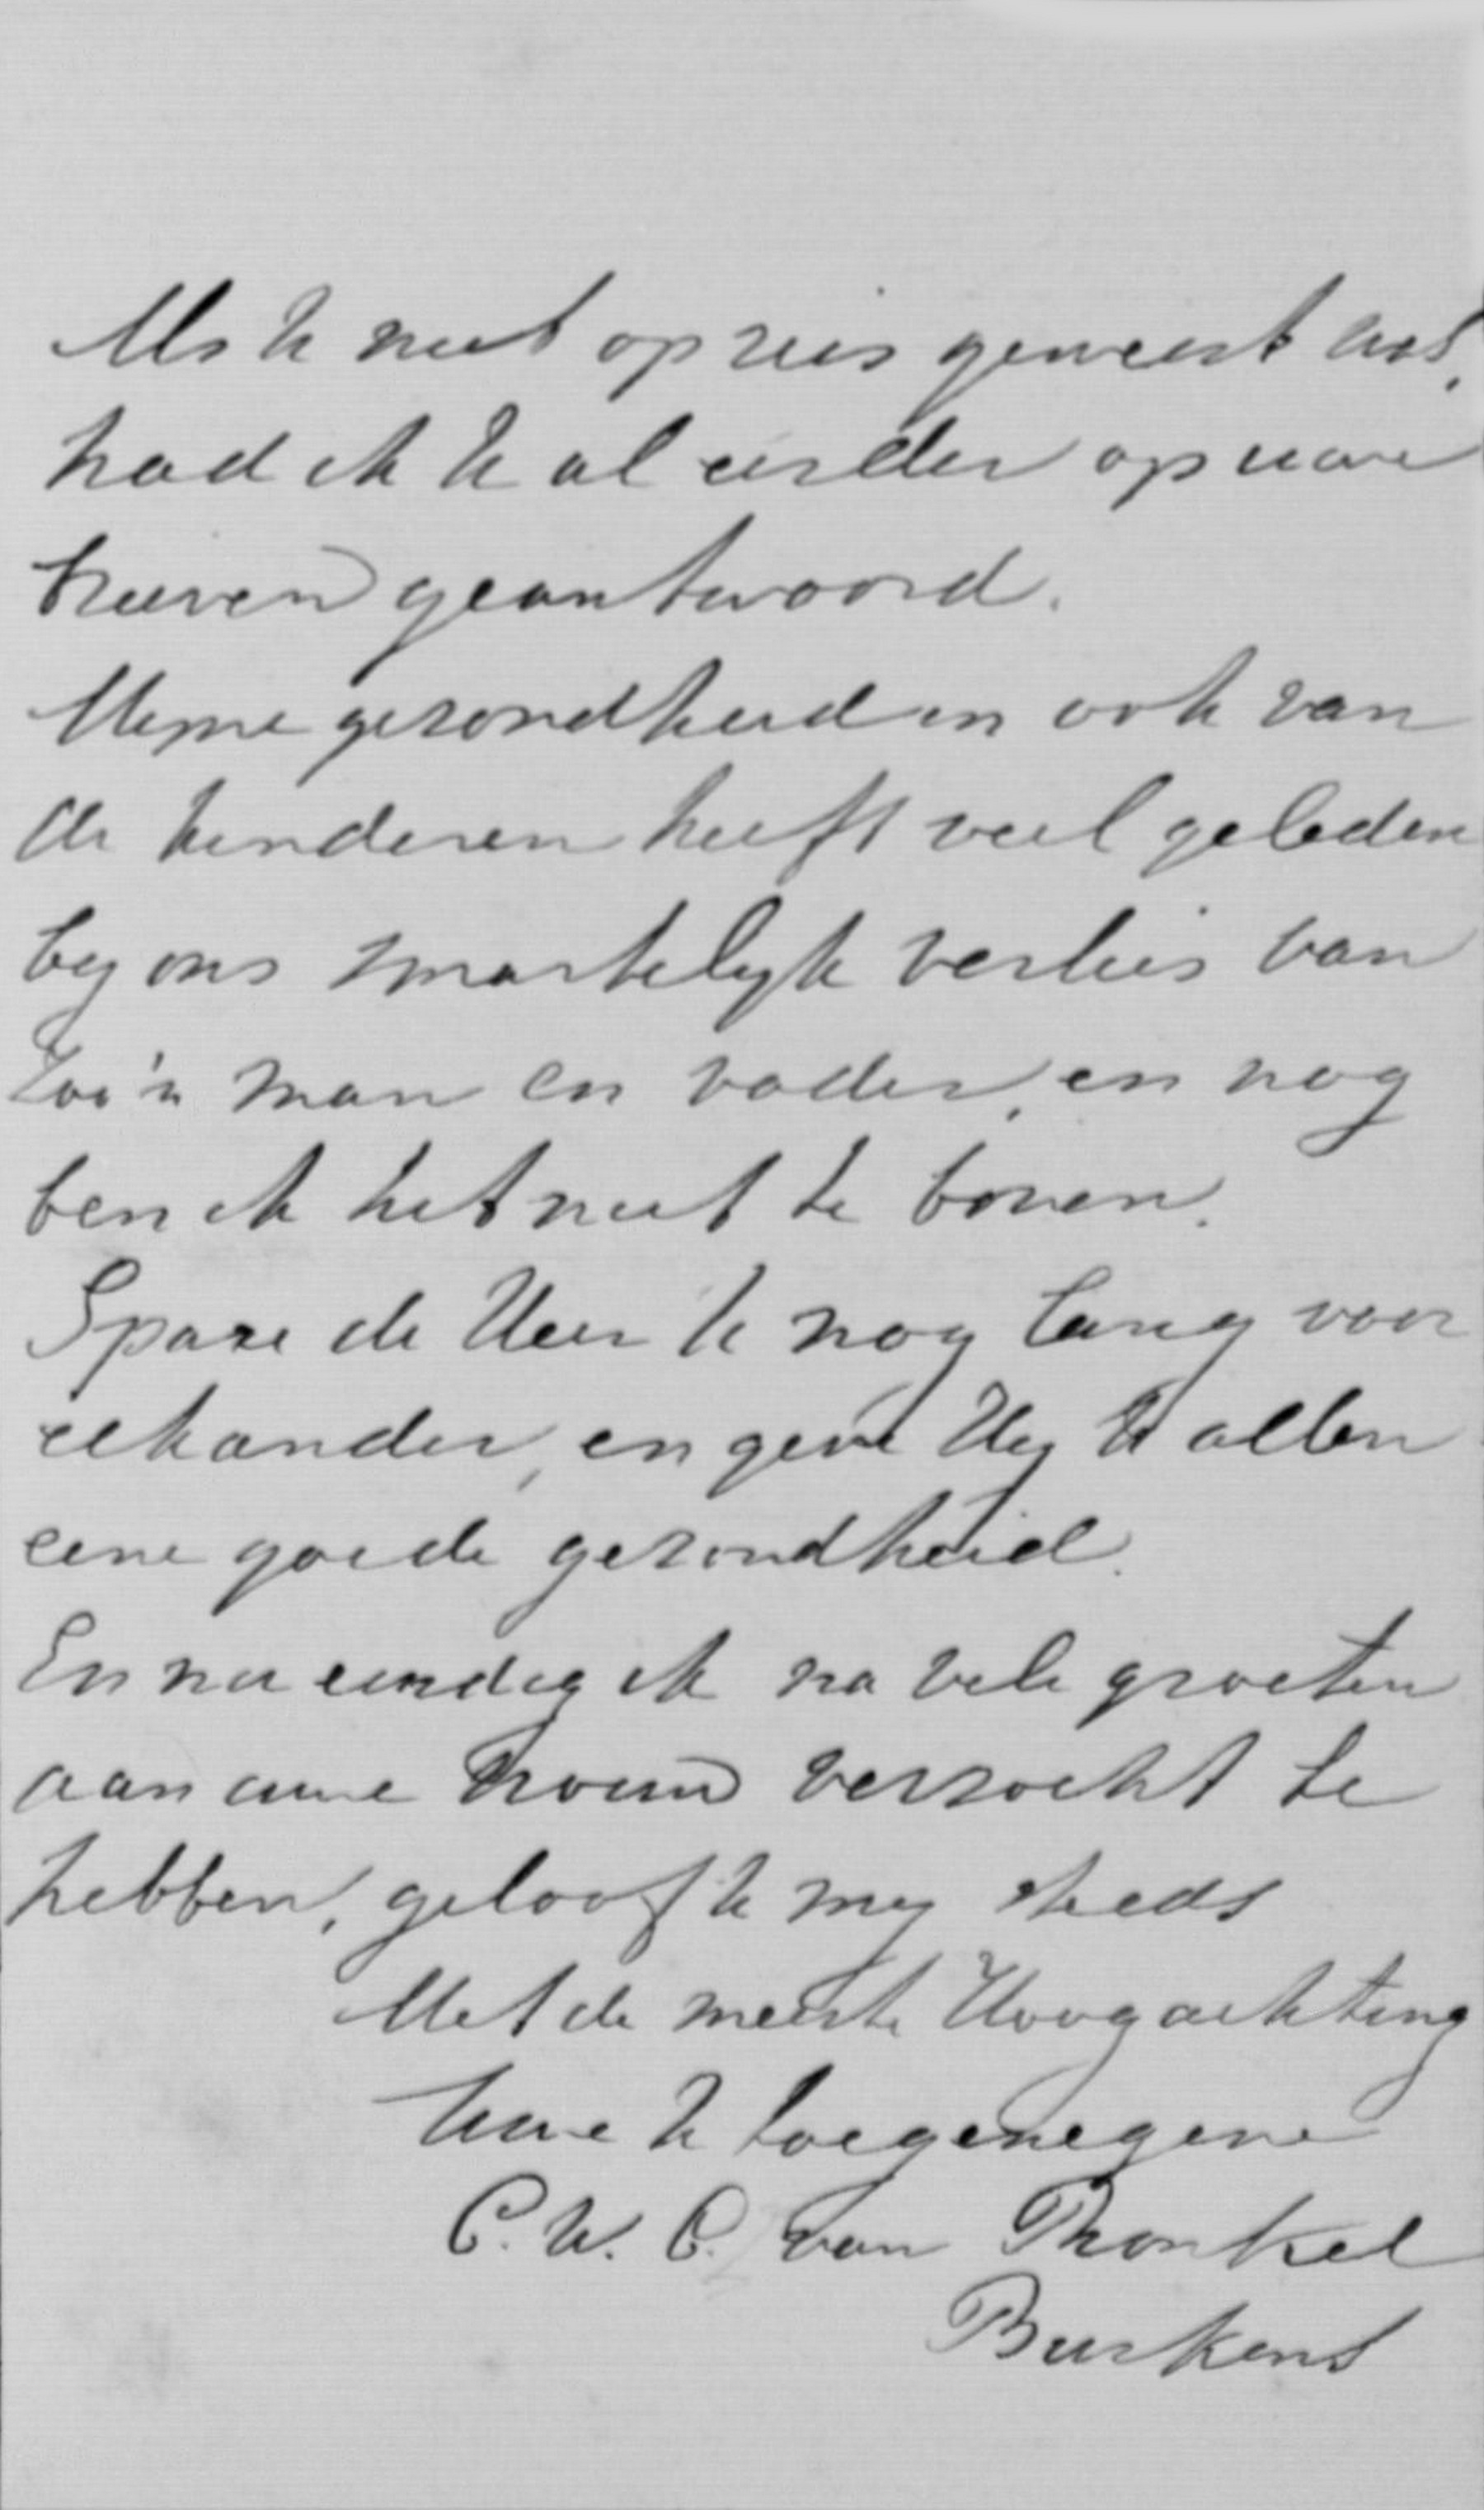 Als U niet op reis geweest was,
had ik U al eerder op uwe
brieven geantwoord.
Mijne gezondheid en ook van
de kinderen heeft veel geleden
by ons smartelyk verlies van
zoo'n man en vader, en nog
ben ik het niet te boven.
Spare de Heer U nog lang voor
elkander, en geve Hy U allen
eene goede gezondheid.
En nu eindig ik na vele groeten
aan uwe vrouw verzocht te
hebben, geloof U my steeds
Met de meeste Hoogachting
Uwe U toegenegene
C. W. C. van